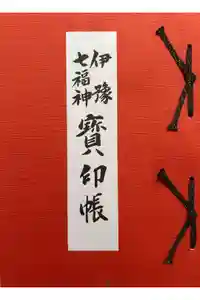 伊豫
七福神
寳印帳